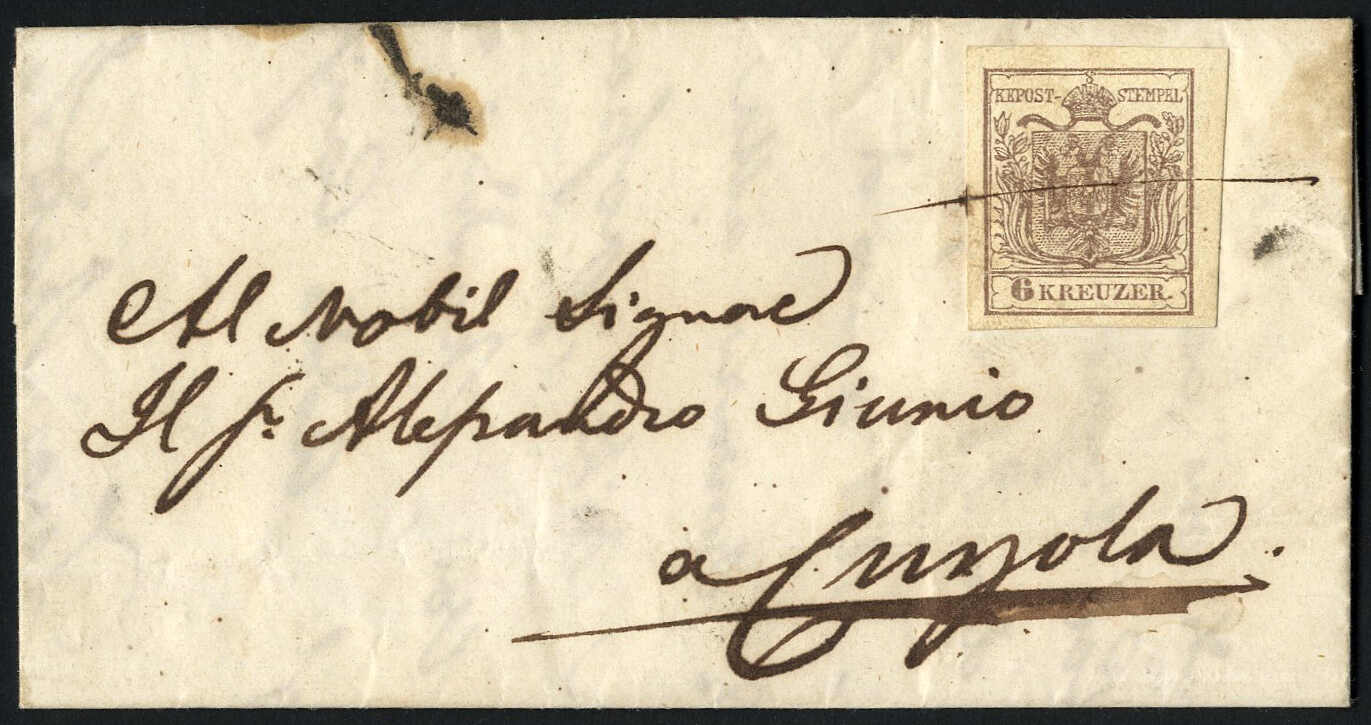 KKPOST-STEMPEL
6 KREUZER.
Al Nobil Signor
Il Sr. Alessandro Giunio
a Curzola.